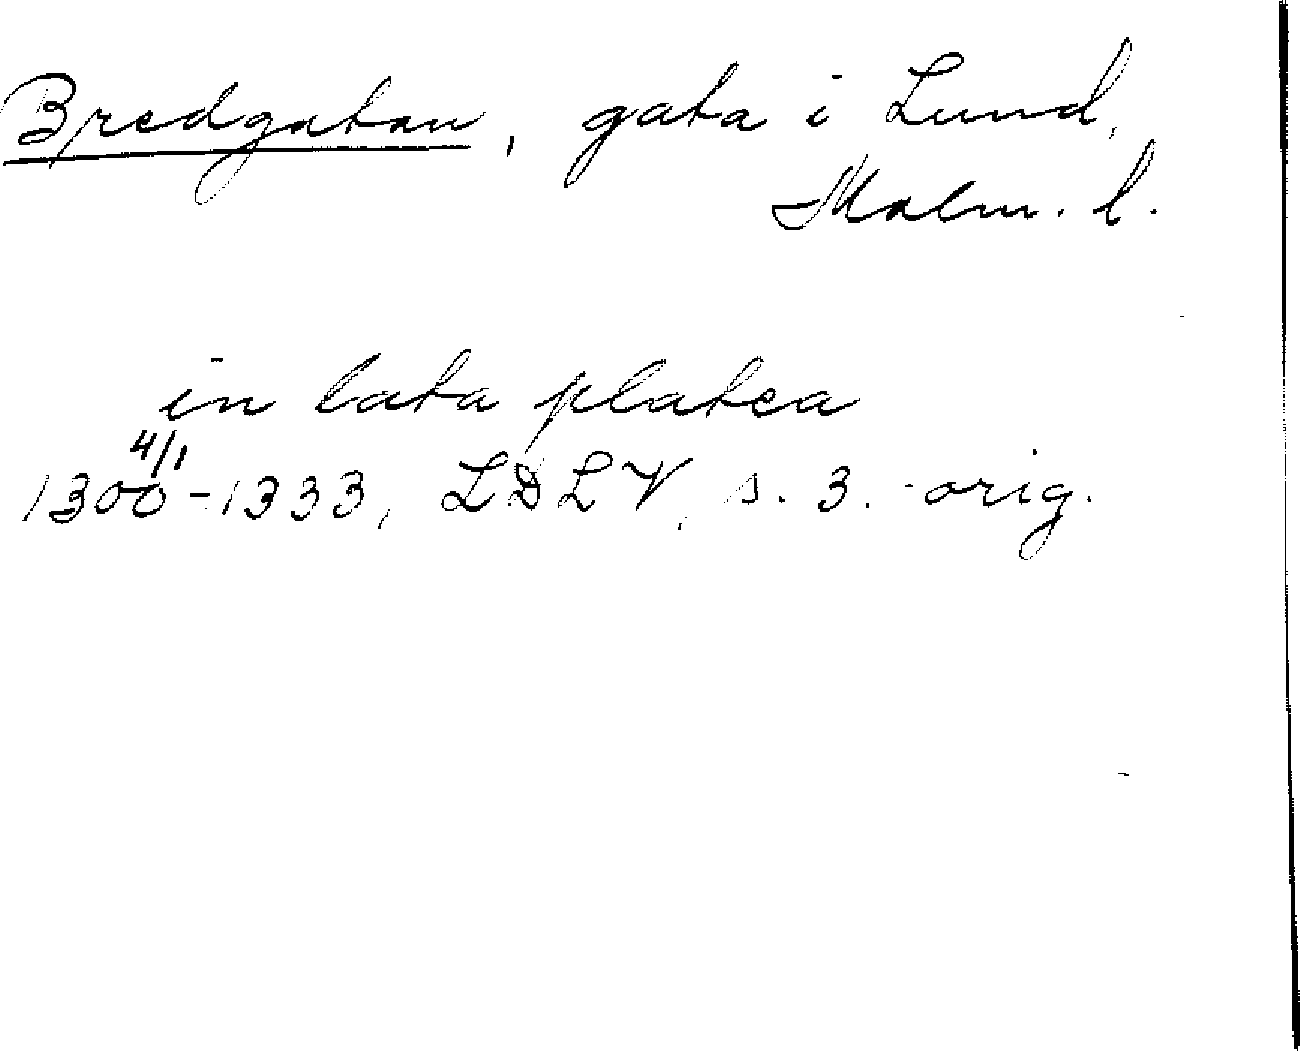 Bredgatan, gata i Lund,
Malm. l.
in lata platea
4/1
1300-1333, LDLV, s. 3. orig.